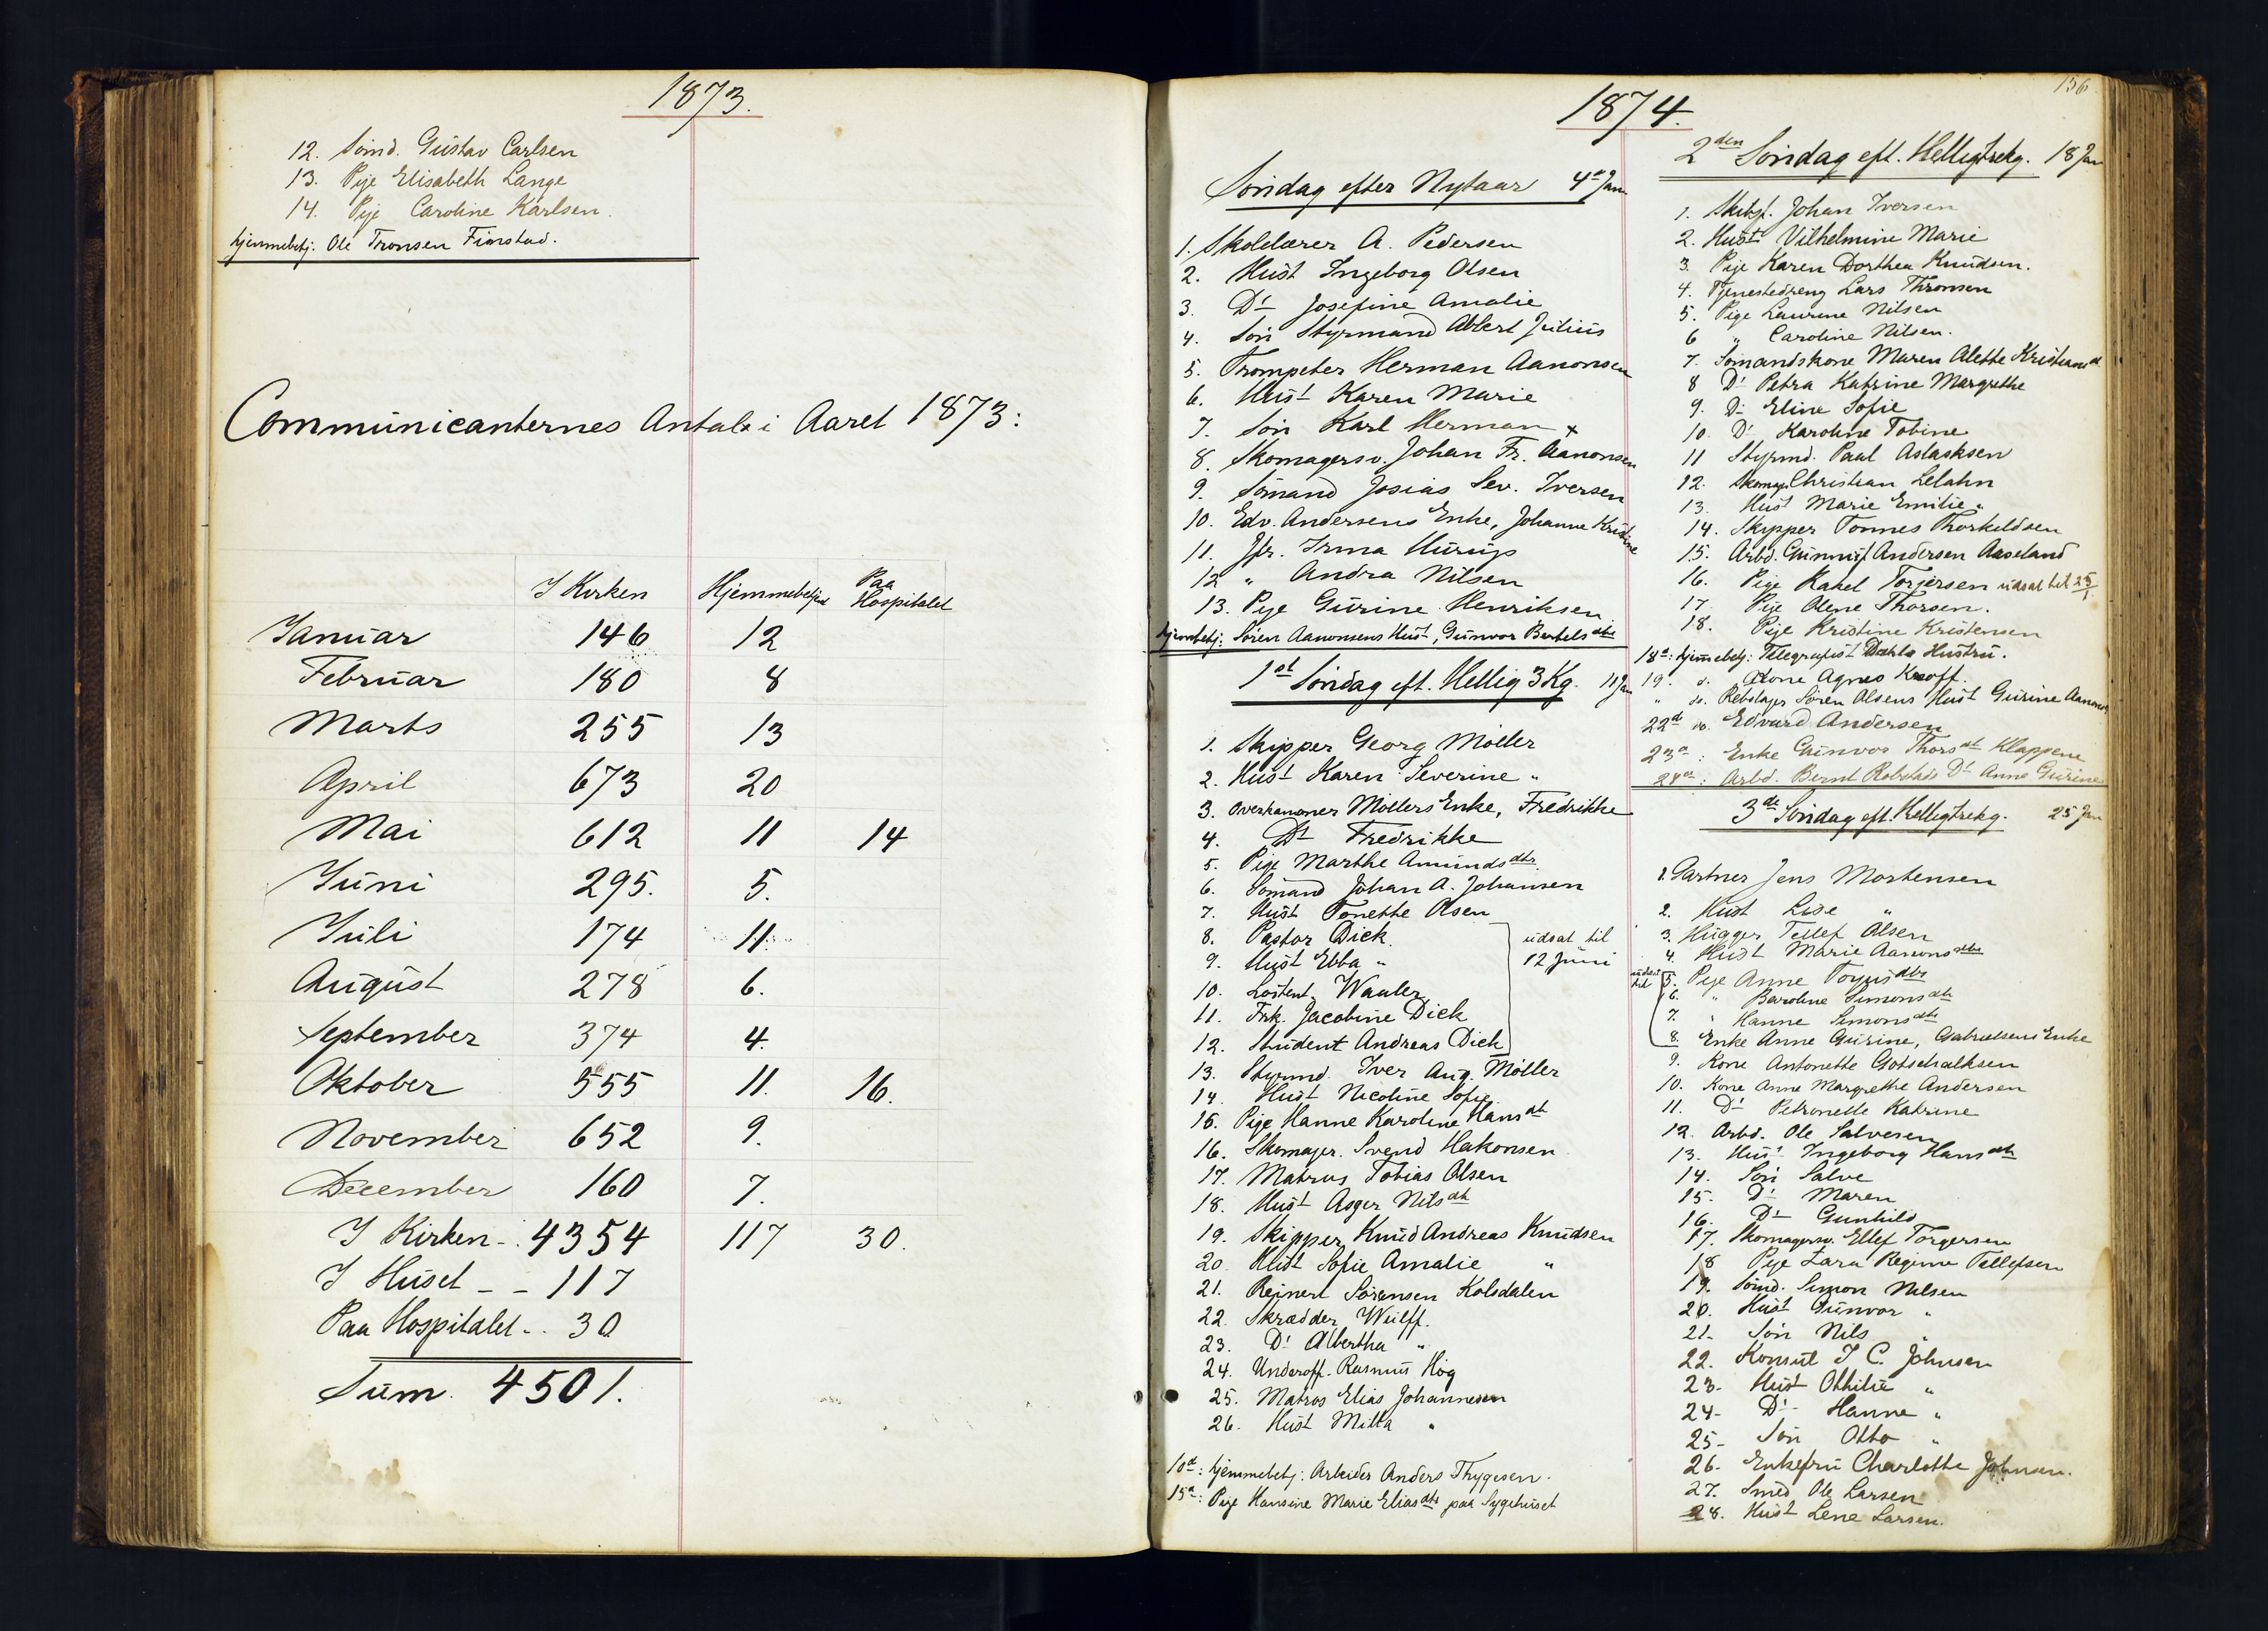 1873.
12. Sømd. Gustav Carlsen
13. Pige Elisabeth Lange
14. Pige Caroline Karlsen.
hjemmebetj. Ole Tronsen Fionstad.
Communicanternes Antal i Aaret 1873:
I Kirken Hjemmebetjent Paa Hospitalet
Januar 146 12
Februar 180 8
Marts 255 13
April 673 20
Mai 612 11 14
Juni 295. 5.
Juli 174 11.
August 278 6.
September 374 4.
Oktober 555 11. 16.
November 652 9.
December 160 7.
I Kirken - 4354 117 30.
I Huset - - 117
Paa Hospitalet - . 30
Sum. 4501.
156
1874.
Søndag efter Nytaar 4de Jan
1. Skolelærer A. Pedersen
2. Hust Ingeborg Olsen
3. Dr Josefine Amalie
4. Søn Styrmand Albert Julius
5. Trompeter Herman Aanonsen
6. Hust Karen Marie
7. Søn Karl Herman x
8. Skomagersv. Johan Fr. Aanonsen
9. Sømand Josias Sev. Iversen
10. Edv. Andersens Enke, Johanne Kristine
11. Jfr. Irma Hurup
12 " Andra Nilsen
13. Pige Gurine Henriksen
hjemmebetj: Søren Aanonsens Hust, Gunvor Bertelsdtr
1st Søndag eft. Hellig 3 Kg. 11 Jan
1. Skipper Georg Møller
2. Hust Karen Severine "
3. Overkanoner Møllers Enke, Fredrikke
4. Dr Fredrikke
5. Pige Marthe Amundsdtr.
6. Sømand Johan A. Johansen
7. Hust Tonette Olsen
8. Pastor Dick
9. Hust Ebba "
udsat til
12 Juni
10. Løitent. Wauler
11. Frk. Jacobine Dick
12. Student Andreas Dick
13. Styrmd. Iver Aug. Møller
14. Hust Nicoline Sofie
15. Pige Hanne Karoline Hansdt
16. Skomager. Svend Hakonsen
17. Matros Tobias Olsen
18. Hust Asger Nilsdt
19. Skipper Knud Andreas Knudsen
20. Hust Sofie Amalie "
21. Reinert Sørensen Kolsdalen
22. Skrædder Wulff.
23. Dr Albertha "
24. Underoff. Rasmus Høg
25. Matros Elias Johannesen
26. Hust Mitta "
10de: hjemmebetj: Arbeider Anders Thygesen.
15de: Pige Hansine Marie Eliasdtr paa Sygehuset
2den Søndag eft. Helligtrekg. 18 Jan
1. Skibsf. Johan Iversen
2. Hust Vilhelmine Marie
3. Pige Karen Dorthea Knudsen.
4. Tjenestedreng Lars Thronsen
5. Pige Laurine Nilsen
6 " Caroline Nilsen.
7. Sømandskone Maren Alette Kristiansdt
8 Dr Petra Katrine Margrethe
9. Dr Eline Sofie
10. Dr Karoline Tobine
11 Styrmd. Paul Aslaksen
12. Skomag. Christian Lelahn
13. Hust Marie Emilie "
14. Skipper Tønnes Thorkeldsen
15. Arbd. Gunnuf Andersen Aaseland
16. Pige Rakel Torjersen udsat til 25/1
17 Pige Olene Thorsen.
18. Pige Kristine Kristensen
18de: hjemmebetj: Telegrafist Dahls Hustru.
19. d. Kone Agnes Knoff.
" do. Rebslager Søren Olsens Hust Gurine Aanonsdt
22de do. Edvard Andersen
23de: Enke Gunvor Thorsdt Klappene
24de: Arbd. Bernt Robstads Dr Anne Gurine
3de Søndag eft. Helligtrekg. 25 Jan
1. Gartner Jens Mortensen
2. Hust Lise "
3. Hugger Tellef Olsen
4. Hust Marie Aanonsdtr
udsat til
5. Pige Anne Toyusdtr
6. " Baroline Simonsdtr
7. " Hanne Simonsdtr
8. Enke Anne Gurine, Gabrielsens Enke
9. Kone Antonette Gotschalksen
10. Kone Anne Margrethe Andersen
11. Dr Petronelle Katrine
12. Arbd. Ole Salvesen
13. Hust Ingeborg Hansdtr
14. Søn Salve
15. Dr Maren
16. Dr Gunhild
17. Skomagersv. Ellef Torgersen
18 Pige Lara Regine Tellefsen
19. Sømd. Simon Nilsen
20. Hust Gunvor "
21. Søn Nils "
22. Konsul I C. Johnsen
23. Hust Othilie "
24. Dr Hanne "
25. Søn Otto "
26. Enkefru Charlotte Johnsen.
27. Smed Ole Larsen
28. Hust Lene Larsen.